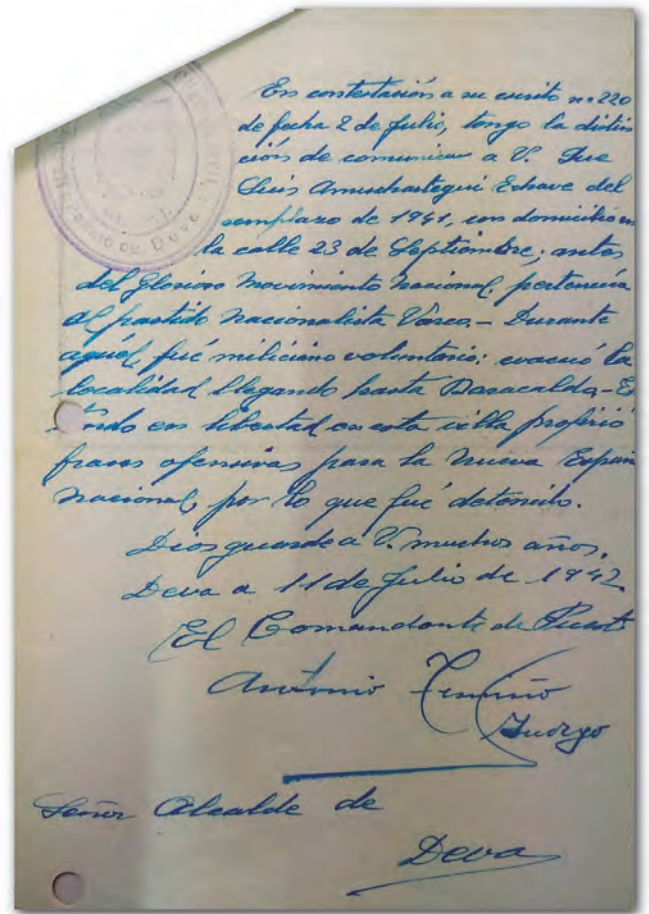 En contestación a su escrito nº 220
de fecha 2 de Julio, tengo la distin
ción de comunicar a V. Que
Luis Amuchastegui Echave del
reemplazo de 1941, con domicilio en
la calle 23 de Septiembre; antes
del Glorioso Movimiento Nacional, pertenecía
al partido Nacionalista Vasco.- Durante
aquel, fué miliciano voluntario; evacuó la
localidad llegando hasta Baracaldo.- E
ndo en libertad en esta villa profirió
frases ofensivas para la Nueva España
Nacional, por lo que fué detenido.
Dios guarde a V. muchos años.
Deva a 11 de Julio de 1942
El Comandante de Puest
Antonio
Señor Alcalde de
Deva